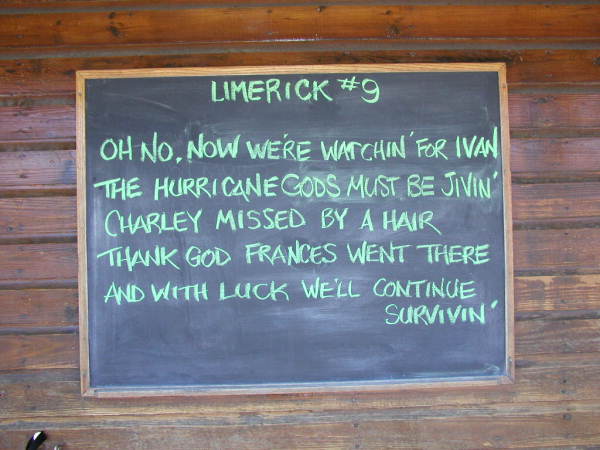 LIMERICK #9
OH NO, NOW WE'RE WATCHIN' FOR IVAN
THE HURRICANE GODS MUST BE JIVIN'
CHARLEY MISSED BY A HAIR
THANK GOD FRANCES WENT THERE
AND WITH LUCK WE'LL CONTINUE
SURVIVIN'